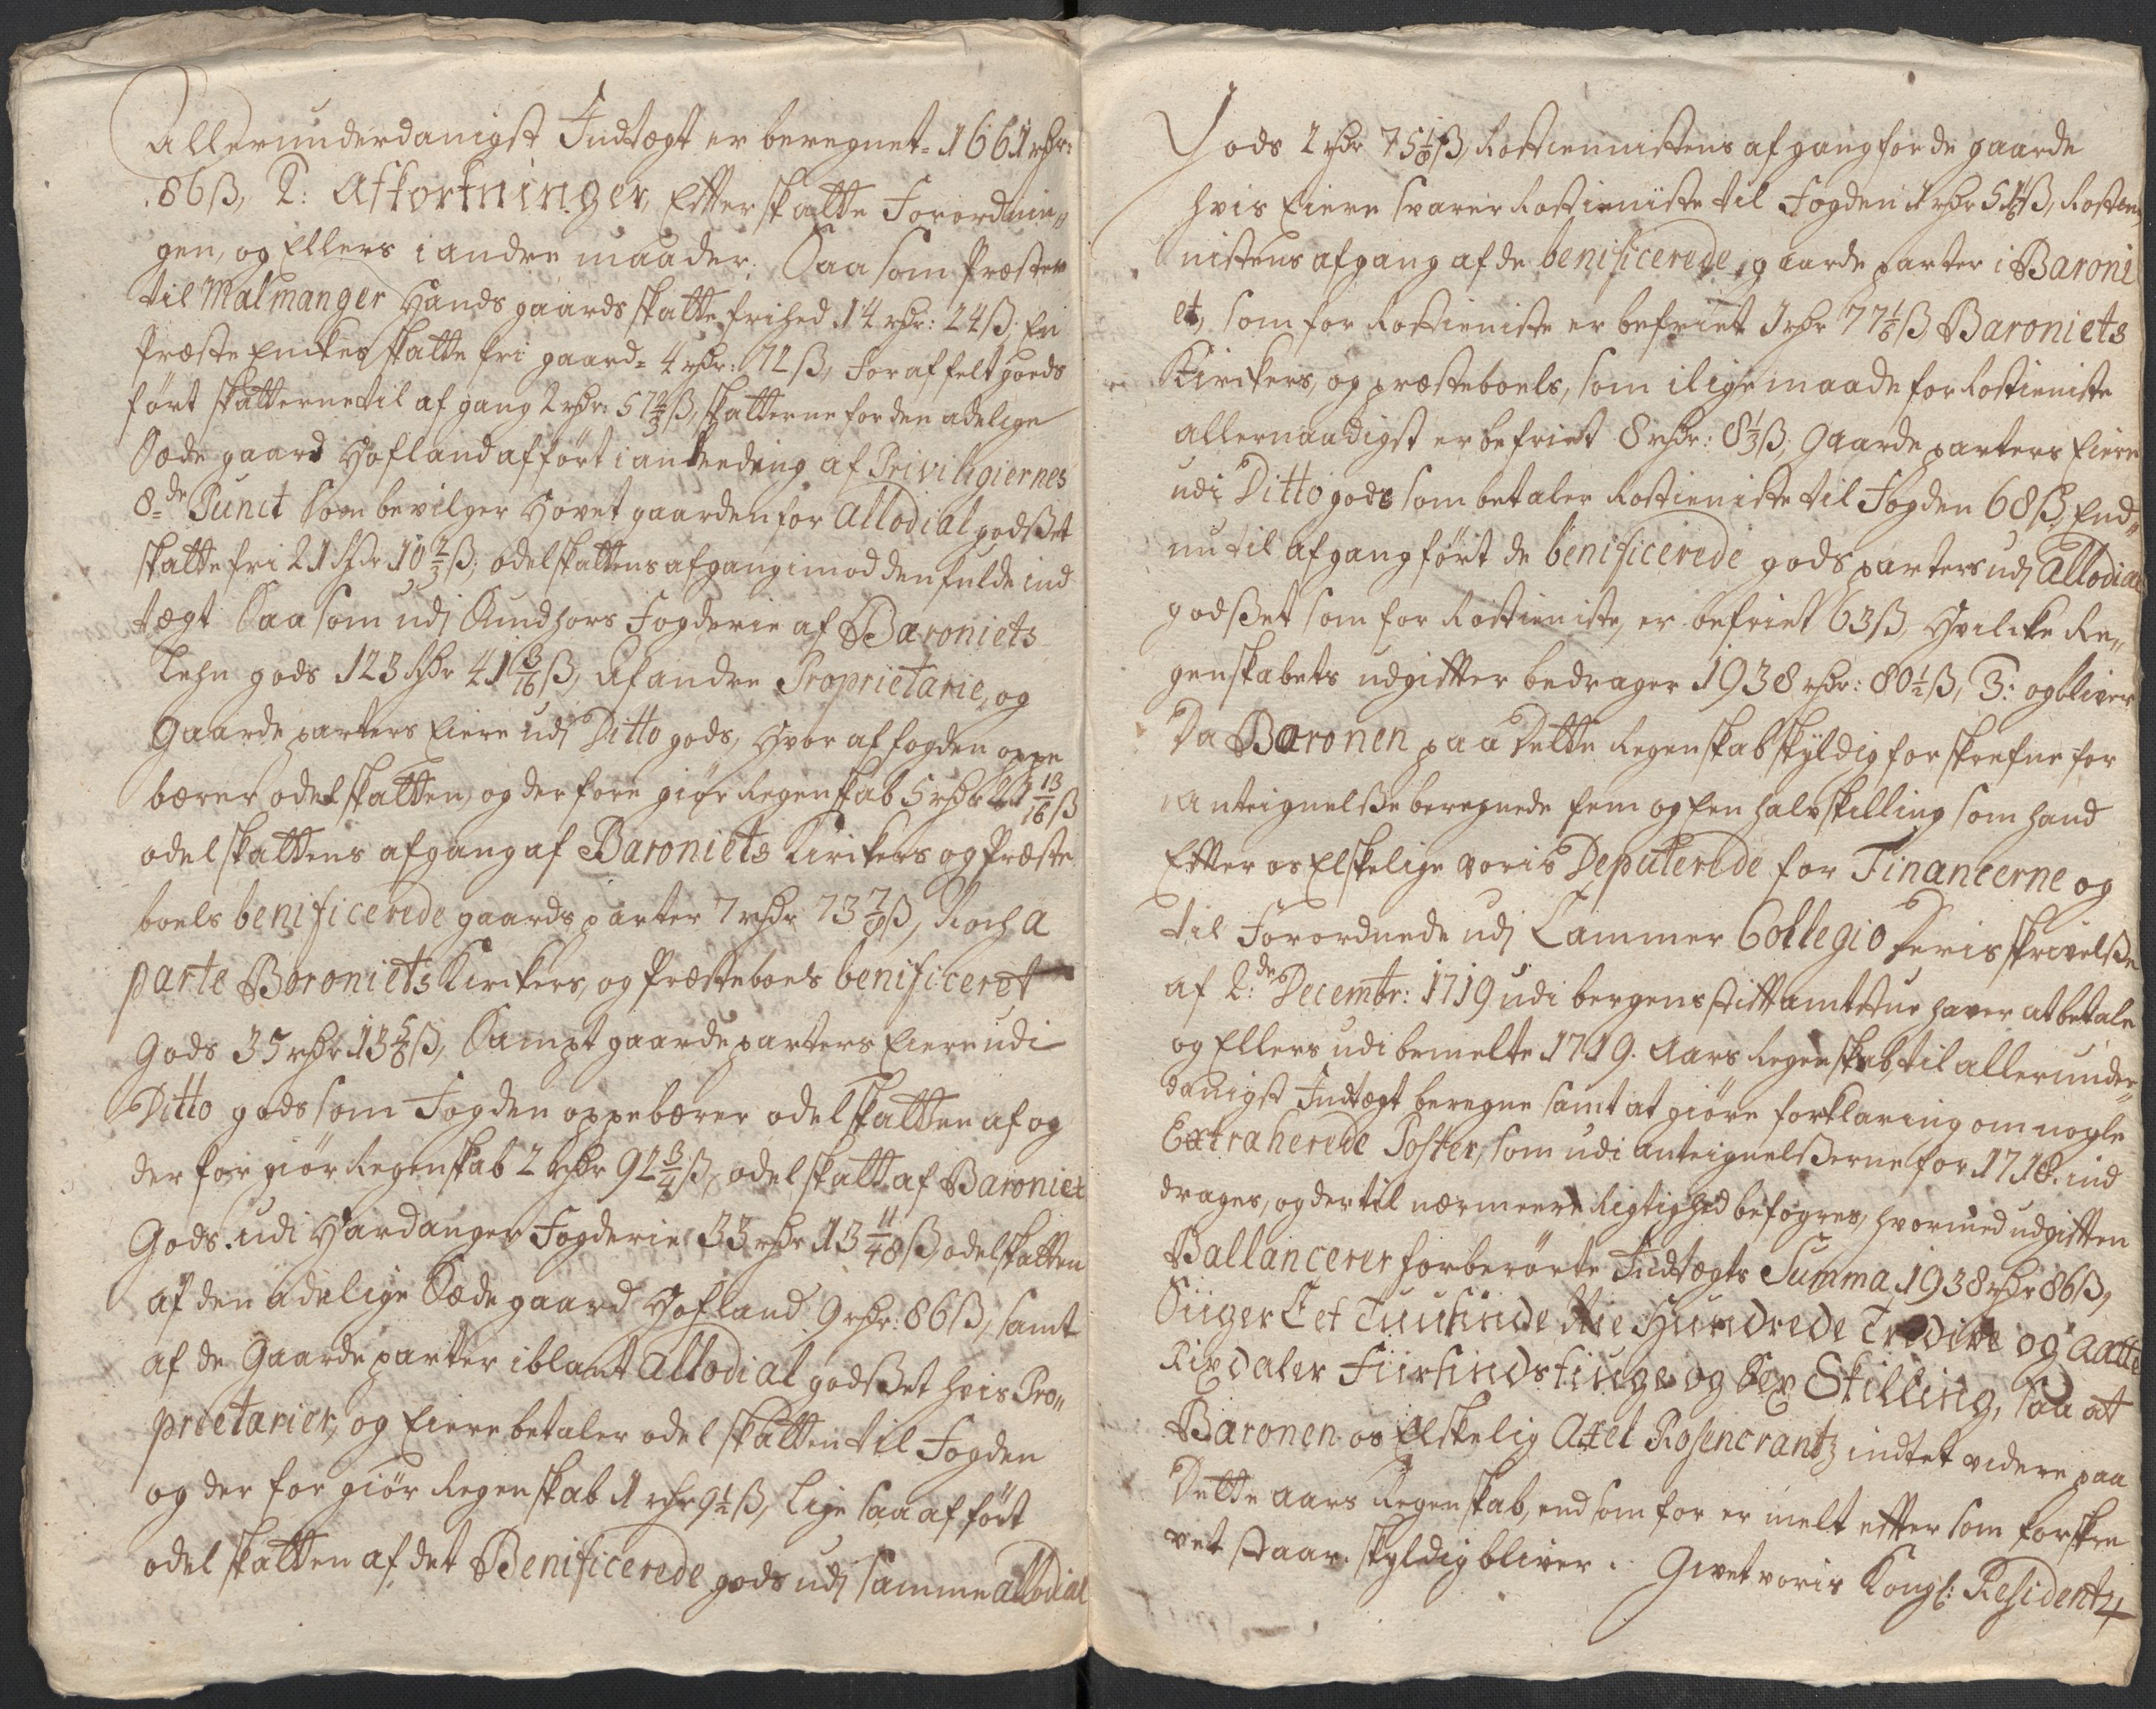 Allerunderdanigst Indtægt er beregnet = 1661 rdr:
86 ß, 2: Afkortninger, Efter skatte Forordnin„
gen, og Ellers i andre maader. Saa som Præsten
til Malmanger Hands gaards skatte frihed 14 rdr: 24 ß; En
Præste Enckes skatte fri gaard = 4 rdr: 72 ß, for affelt goeds
ført skatterne til afgang 2 rdr: 57 2/3 ß, skatterne for den adelige
Sæde gaard Hofland afført i anledning af Priviligiernes
8de Punct som bevilger Hovet gaarden for Allodial godset
skatte fri 21 rdr 10 2/3 ß; odelskattens afgang imod den fulde ind
tægt Saa som udj Sundhors Fogderie af Baroniets
Lehn gods 123 rdr 41 3/16 ß, Af andre Proprietarie, og
Gaardeparters Eiere udj Ditto gods, Hvor af fogden oppe
bærer odel skatten, og derfore giør Regenskab 5 rdr 21 13/16 ß
odelskattens afgang af Baroniets Kirkers og Præste
boels benificerede gaards parter 7 rdr 73 7/8 ß, Noch a
parte Baroniets Kirkers, og Præsteboels benificeret
Gods 35 rdr 13 5/8 ß, Sampt gaardeparters Eiere udi
Ditto gods som Fogden oppebærer odelskatten af og
der for giør Regenskab 2 rdr 92 3/4 ß, odelskatt af Baroniet
Gods udi Hardanger Fogderie 33 rdr 13 11/48 ß odelskatten
af den adelige Sæde gaard Hofland 9 rdr: 86 ß, samt
af de Gaardeparter iblant Allodial godset hvis Pro„
prietarier, og Eiere betaler odel skatten til Fogden
og der for giør Regenskab 1 rdr 9 1/2 ß, lige saa afført
odel skatten af det Benificerede gods udj samme allodial
Gods 2 rdr 75 1/8 ß, Rostienistens afgang for de gaarde
hvis Eiere svarer Rostieniste til Fogden 1 rdr 51 ß, Rostie
nistens afgang af de benificerede gaardeparter i Baroni
et, som for Rostieniste er befriet 1 rdr 77 1/8 ß, Baroniets
Kirckers, og præsteboels, som i lige maade for Rostieniste
allernaadigst er befriet 8 rdr: 8 1/3 ß, Gaardeparters Eiere
udi Ditto gods som betaler Rostieniste til Fogden 68 ß, End„
nu til afgang ført de benificerede gods parters udj Allodial
godset som for Rostieniste, er befriet 63 ß, Hvilcke Re„
genskabets udgifter bedrager 1938 rdr: 80 1/2 ß, 3: og bliver
Da Baronen paa Dette Regenskab skyldig forskrefne for
Anteignelse beregnede fem og Een halv skilling som hand
Efter os Elskelige voris Deputerede for Financerne og
til Forordnede udj Cammer Collegio Deris skrivelse
af 2de Decembr: 1719 udi bergens stiftamtstue haver at betale
og Ellers udi bemelte 1719. Aars Regenskab, til allerunder„
danigst Indtægt beregne samt at giøre forklaring om nogle
Extraherede Poster, som udi anteignelserne for 1718. ind
drages, og dertil nærmeere Rigtighed befogres, hvormed udgiften
Ballancerer forberørte Indtægts Summa 1938 rdr 86 ß,
Siiger Eet Tuusinde Nie Hundrede Tredive og Aatte
Rixdaler Fiirsindstiuge og Sex Skilling, saa at
Baronen os Elskelig Axel Rosencrantz indtet videre paa
Dette aars Regenskab, end som for er melt efter som forskre
vet staar, skyldig bliver. Givet voris Kongl: Residentz